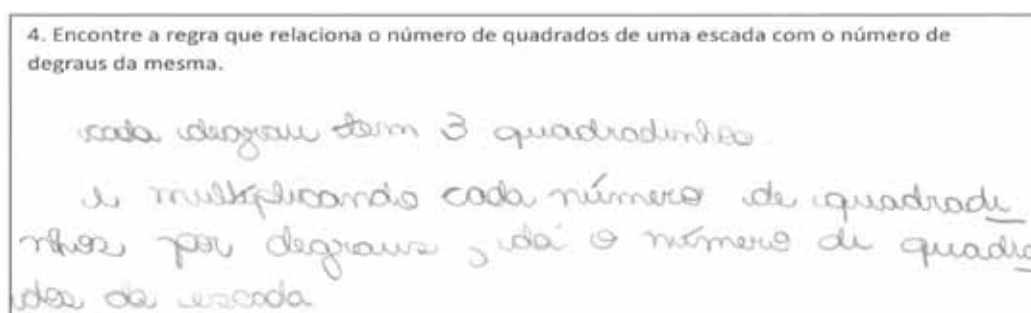 4. Encontre a regra que relaciona o número de quadrados de uma escada com o número de
degraus da mesma.
cada degrau tem 3 quadradinhos
e multiplicando cada número de quadradi
nhos por degraus, dá o número de quadra
dos da escada